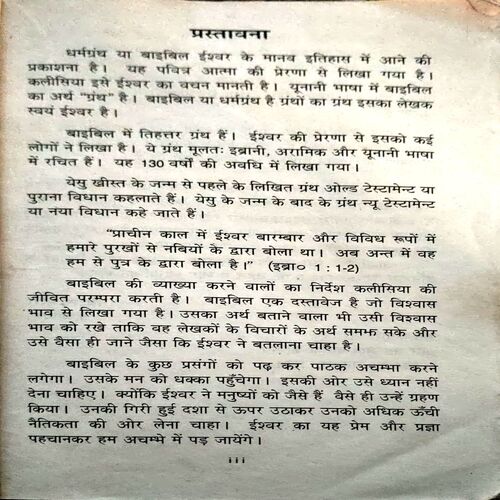 प्रस्तावना
धर्मग्रंथ या बाइबिल ईश्वर के मानव इतिहास में आने की
प्रकाशना है। यह पवित्र आत्मा की प्रेरणा से लिखा गया है।
कलीसिया इसे ईश्वर का वचन मानती है। यूनानी भाषा में बाइबिल
का अर्थ "ग्रंथ" है। बाइबिल या धर्मग्रंथ है ग्रंथों का ग्रंथ इसका लेखक
स्वयं ईश्वर है।
बाइबिल में तिहत्तर ग्रंथ हैं। ईश्वर की प्रेरणा से इसको कई
लोगों ने लिखा है। ये ग्रंथ मूलतः इब्रानी, अरामिक और यूनानी भाषा
में रचित हैं। यह 130 वर्षों की अवधि में लिखा गया।
येसु ख्रीस्त के जन्म से पहले के लिखित ग्रंथ ओल्ड टेस्टामेन्ट या
पुराना विधान कहलाते हैं। येसु के जन्म के बाद के ग्रंथ न्यू टेस्टामेन्ट
या नया विधान कहे जाते हैं।
"प्राचीन काल में ईश्वर बारम्बार और विविध रूपों में
हमारे पुरखों से नबियों के द्वारा बोला था। अब अन्त में वह
हम से पुत्र के द्वारा बोला है।" (इब्रा० 1 : 1-2)
बाइबिल की व्याख्या करने वालों का निर्देश कलीसिया की
जीवित परम्परा करती है। बाइबिल एक दस्तावेज है जो विश्वास
भाव से लिखा गया है। उसका अर्थ बताने वाला भी उसी विश्वास
भाव को रखे ताकि वह लेखकों के विचारों के अर्थ समझ सके और
उसे वैसा ही जाने जैसा कि ईश्वर ने बतलाना चाहा है।
बाइबिल के कुछ प्रसंगों को पढ़ कर पाठक अचम्भा करने
लगेगा। उसके मन को धक्का पहुँचेगा। इसकी ओर उसे ध्यान नहीं
देना चाहिए। क्योंकि ईश्वर ने मनुष्यों को जैसे हैं वैसे ही उन्हें ग्रहण
किया। उनकी गिरी हुई दशा से ऊपर उठाकर उनको अधिक ऊँची
नैतिकता की ओर लेना चाहा। ईश्वर का यह प्रेम और प्रज्ञा
पहचानकर हम अचम्भे में पड़ जायेंगे।
iii